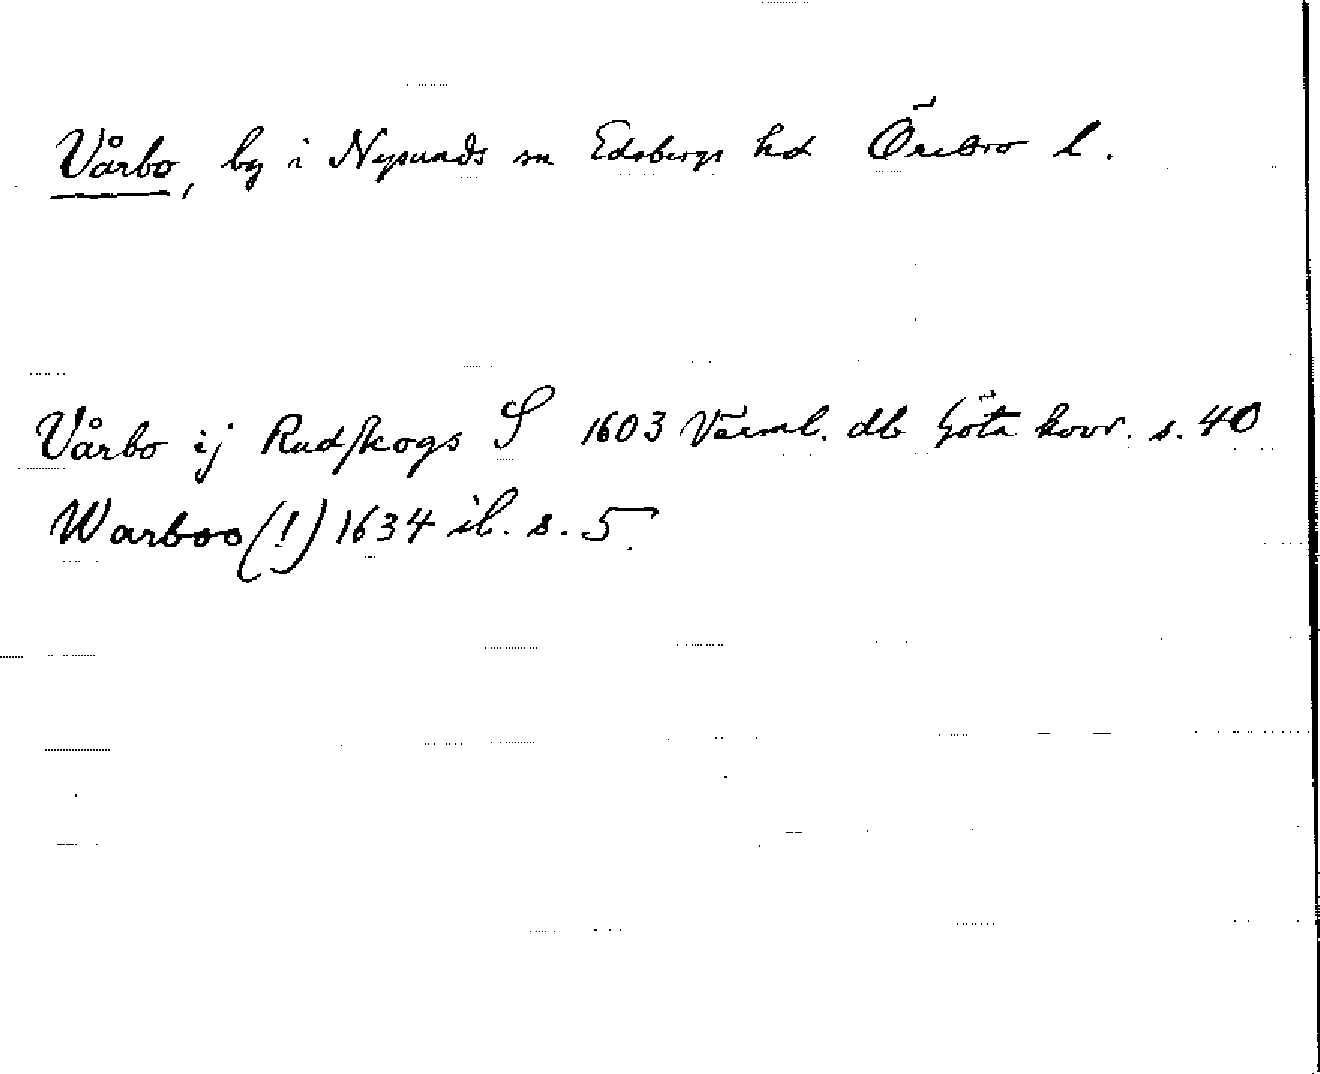 Vårbo, by i Nysunds sn Edsbergs hd Örebro l.
Vårbo ij Rudskogs S 1603 Värml. db Göta hovr. s. 40
Warboo (!) 1634 ib. s. 5